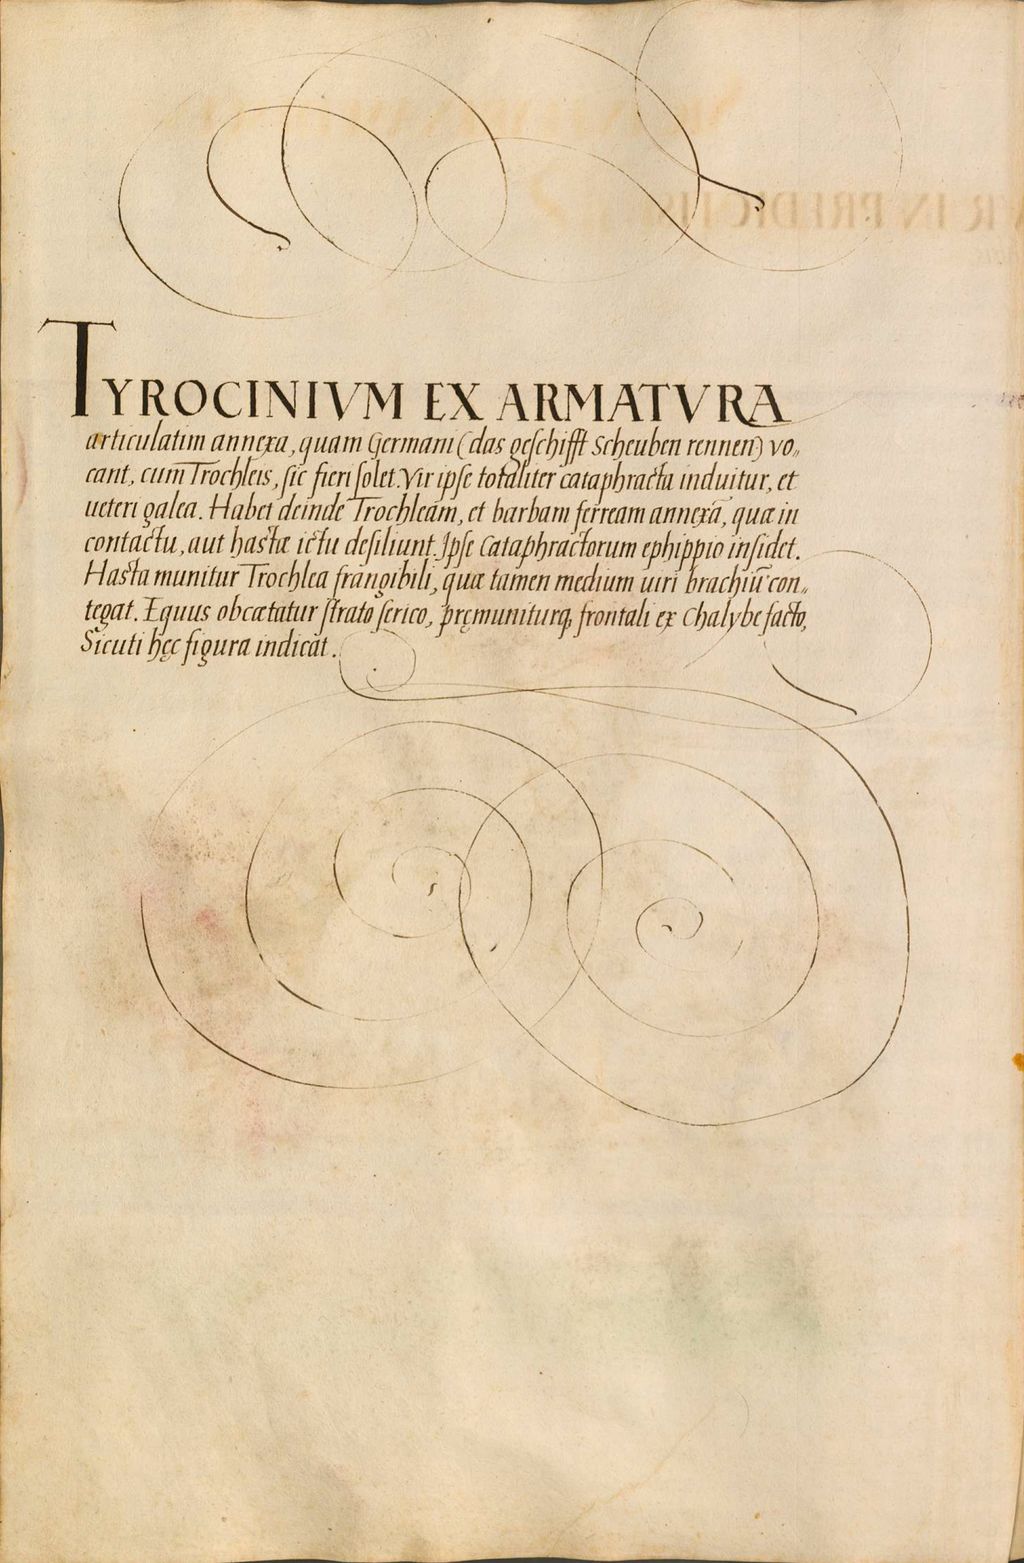 TYROCINIVM EX ARMATVRA
articulatim annexa, quam Germani (das geschifft Scheuben rennen) vo„
cant, cum Trochleis, sic fieri solet. Vir ipse totaliter cataphracta induitur, et
ueteri galea. Habet deinde Trochleam, et barbam ferream annexã, quæ in
contactu, aut hastæ ictu desiliunt. Ipse Cataphractorum ephippio insidet.
Hasta munitur Trochlea frangibili, quæ tamen medium uiri brachiũ con„
tegat. Equus obcætatur strato serico, pręmuniturq, frontali ex Chalybe facto,
Sicuti hęc figura indicat.